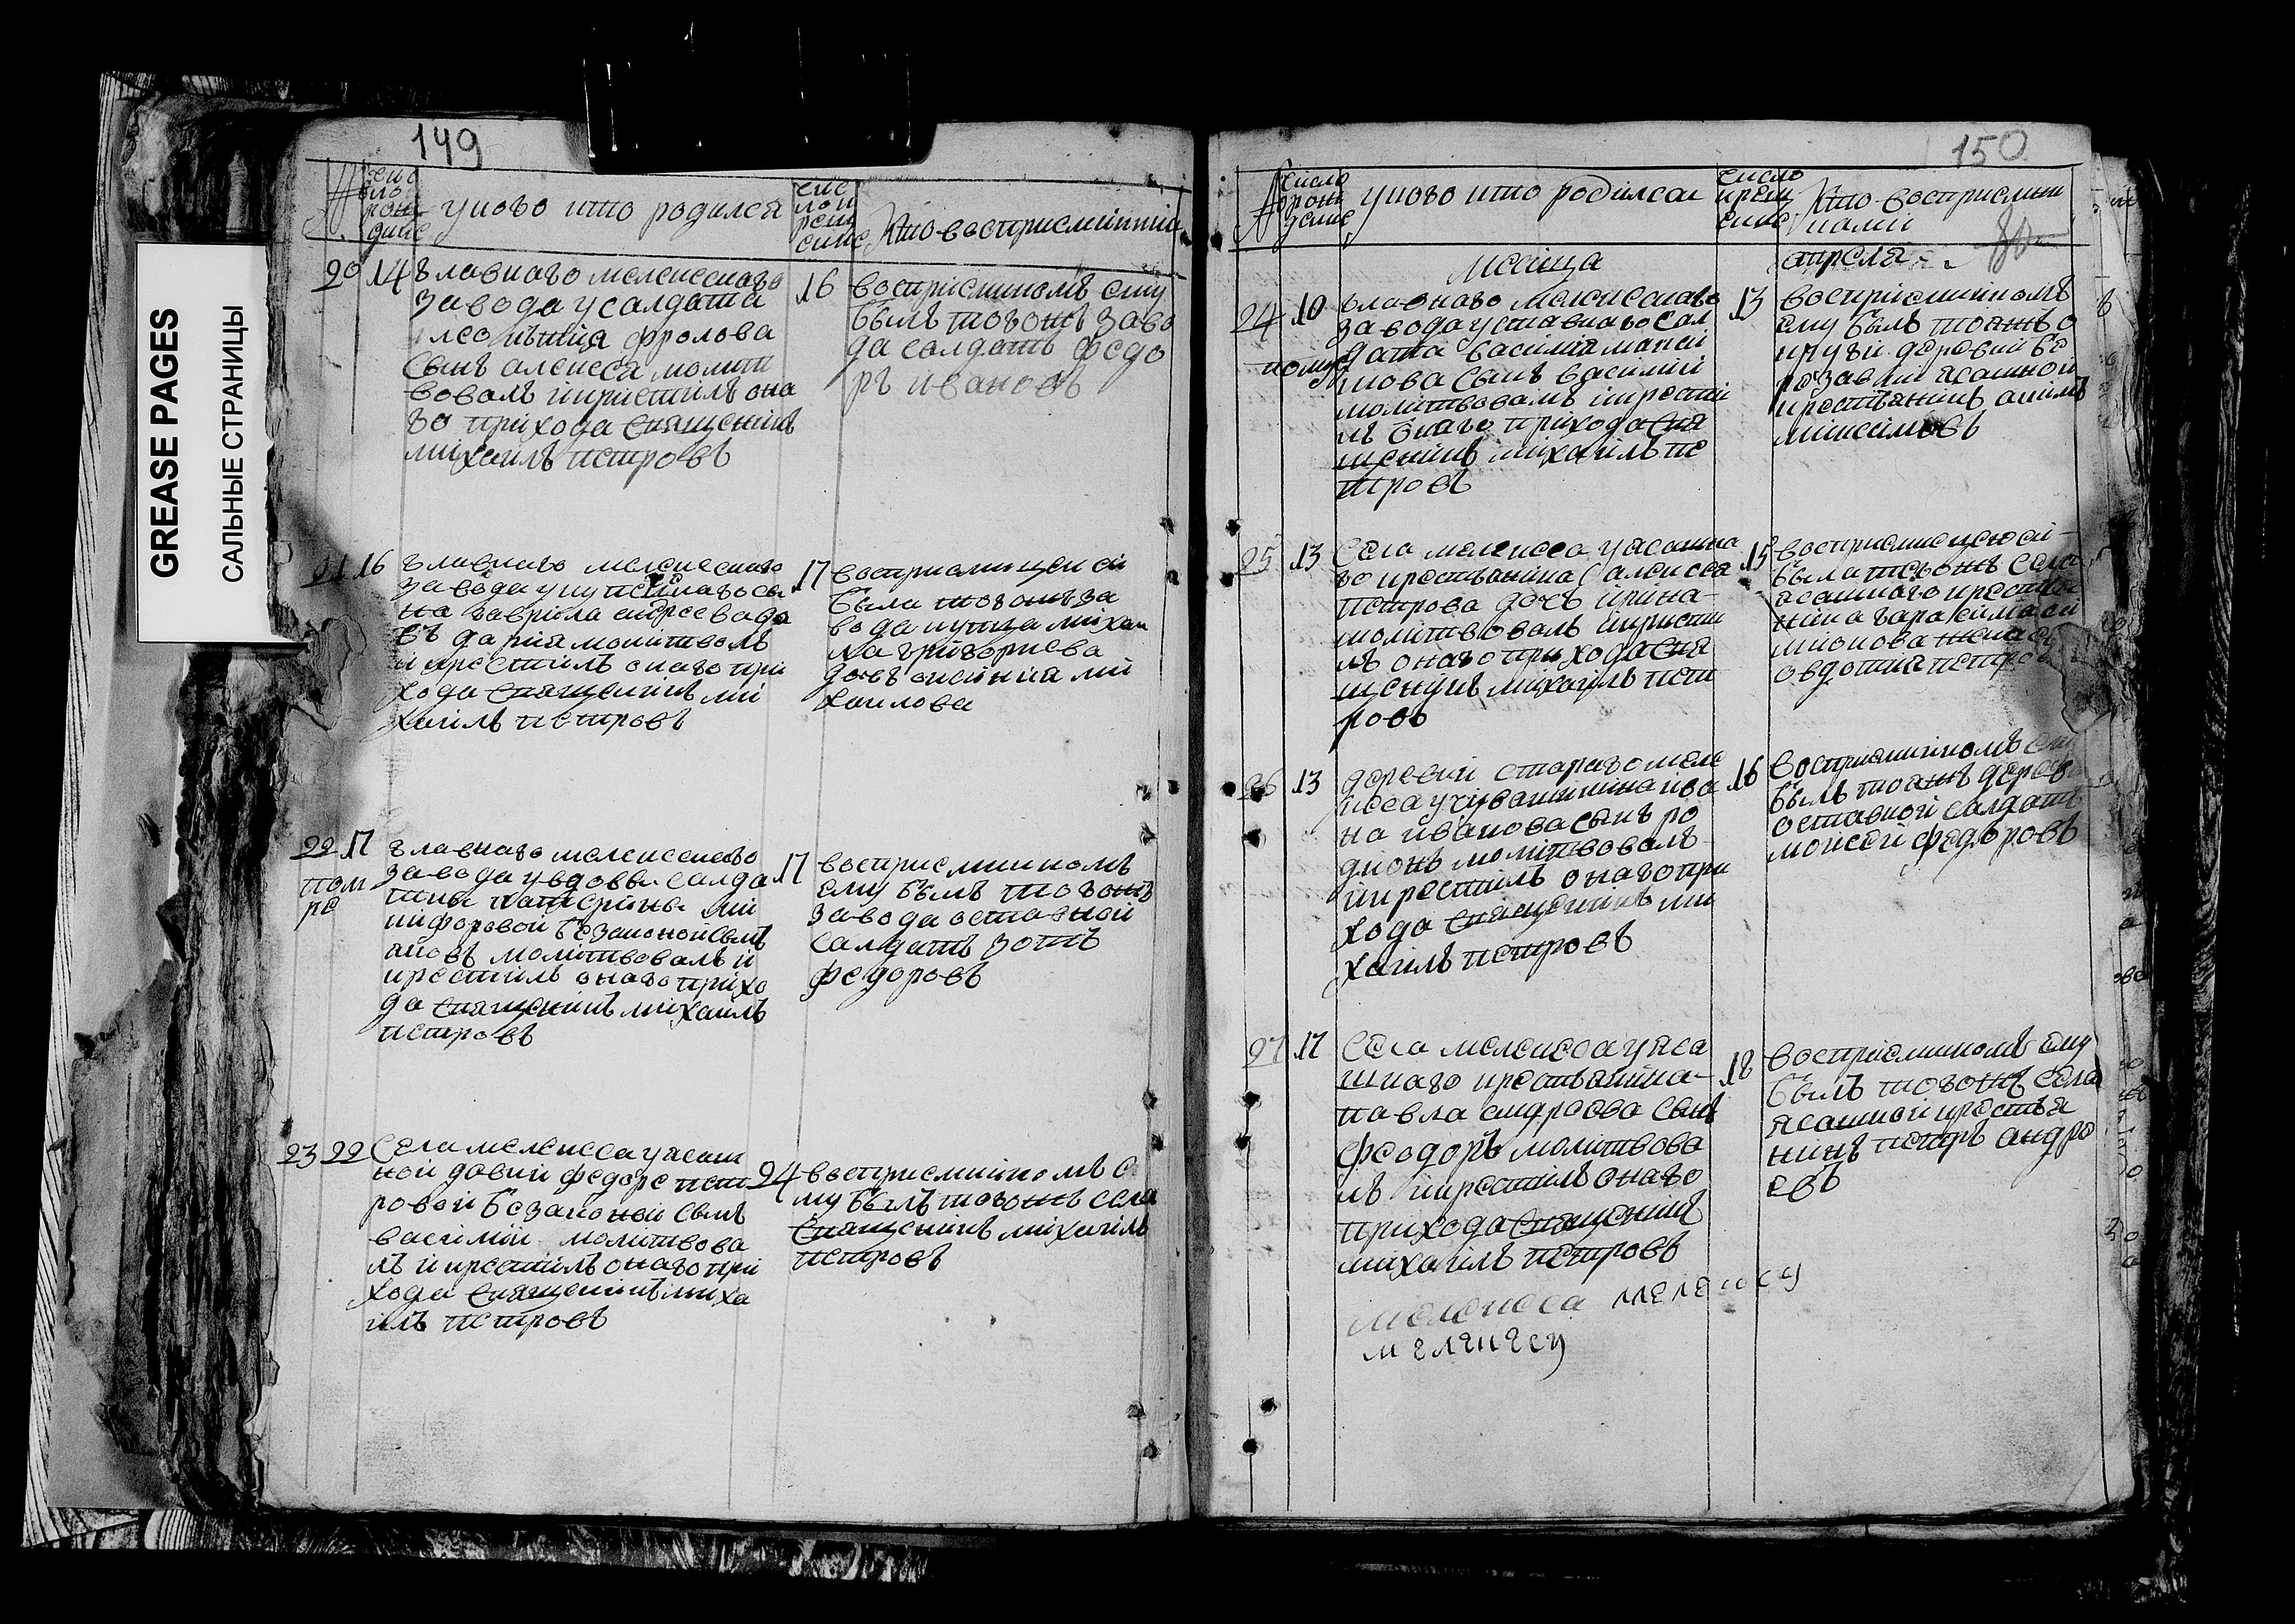 GREASE PAGES
САЛЬНЫЕ СТРАНИЦЫ
149
№
число рождение
у кого кто родился
число крещение
Кто восприемники
20 14
главнаго мелекескаго
завода у салдата
фролова
сынъ алексѣя молит
вовалъ и крестилъ она
го прихода священникъ
михаилъ петровъ
16
восприемникомъ ему
былъ того жъ заво
да салдатъ федо
ръ ивановъ
21 16
главнаго мелекескаго
завода у купецкаго сы
на гаврила андреева до
чь дария молитвовалъ
и крестилъ онаго при
хода священникъ ми
хаилъ петровъ
17
восприемницеи еи
была того жъ за
вода купца михаи
ла григорьева
дочь
хаилова
22 17
помре
главнаго мелекескаго
завода у вдовы салда
тки катерины ни
кифоровой безаконой сынъ
аковъ молитвовалъ и
крестилъ онаго прихо
да священникъ михаилъ
петровъ
17
восприемникомъ
ему былъ того жъ
завода оставной
салдатъ зотъ
федоровъ
23 22
Села мелекесса у ясаш
ной федоре пет
ровой безаконой сынъ
василий молитвова
лъ и крестилъ онаго при
хода священникъ миха
илъ петровъ
24
восприемникомъ е
му былъ того жъ села
священникъ михаилъ
петровъ
150
№
число рождение
у кого кто родился
число крещение
Кто восприемники
месяца
апреля
24 10
помре
главнаго мелекескаго
завода у ставнаго сал
дата василия макси
мова сынъ василий
молитвовалъ и крести
лъ онаго прихода свя
щеникъ михаилъ пе
тровъ
13
восприемникомъ
ему былъ тоя жъ о
круги деревни бе
резовки ясашной
крестьянинъ акимъ
максимовъ
25 13
Села мелекесса у ясашна
го крестьянина алексея
петрова дочь ирина
молитвовалъ и крести
лъ онаго прихода свя
щеникъ михаилъ пет
ровъ
15
восприемницею еи
была того жъ села
ясашнаго крестья
нина гарасима си
монова жена
овдотия петрова
26 13
деревни стараго меле
кеса у чувашинина ива
на иванова сынъ ро
дионъ молитвовалъ
и крестилъ онаго при
хода священникъ ми
хаилъ петровъ
16
восприемникомъ ему
былъ тоя жъ деревни
оставной салдатъ
моисеи федоровъ
27 17
Села мелекесса у яса
шнаго крестьянина
павла андреева сынъ
феодоръ молитвова
лъ и крестилъ онаго
прихода священникъ
михаилъ петровъ
18
восприемникомъ ему
былъ того жъ села
ясашной крестья
нинъ петръ андре
евъ
мелекеса мелекесу
мелекесу